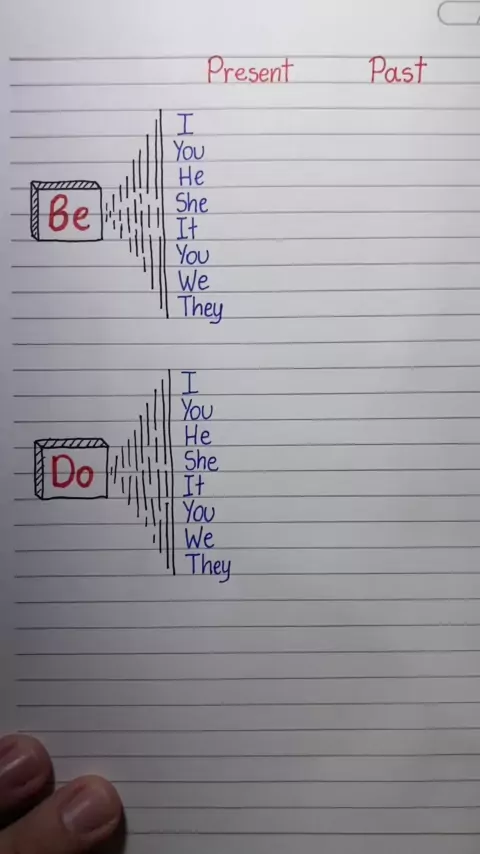 Present Past
Be
I
You
He
She
It
You
We
They
Do
I
You
He
She
It
You
We
They